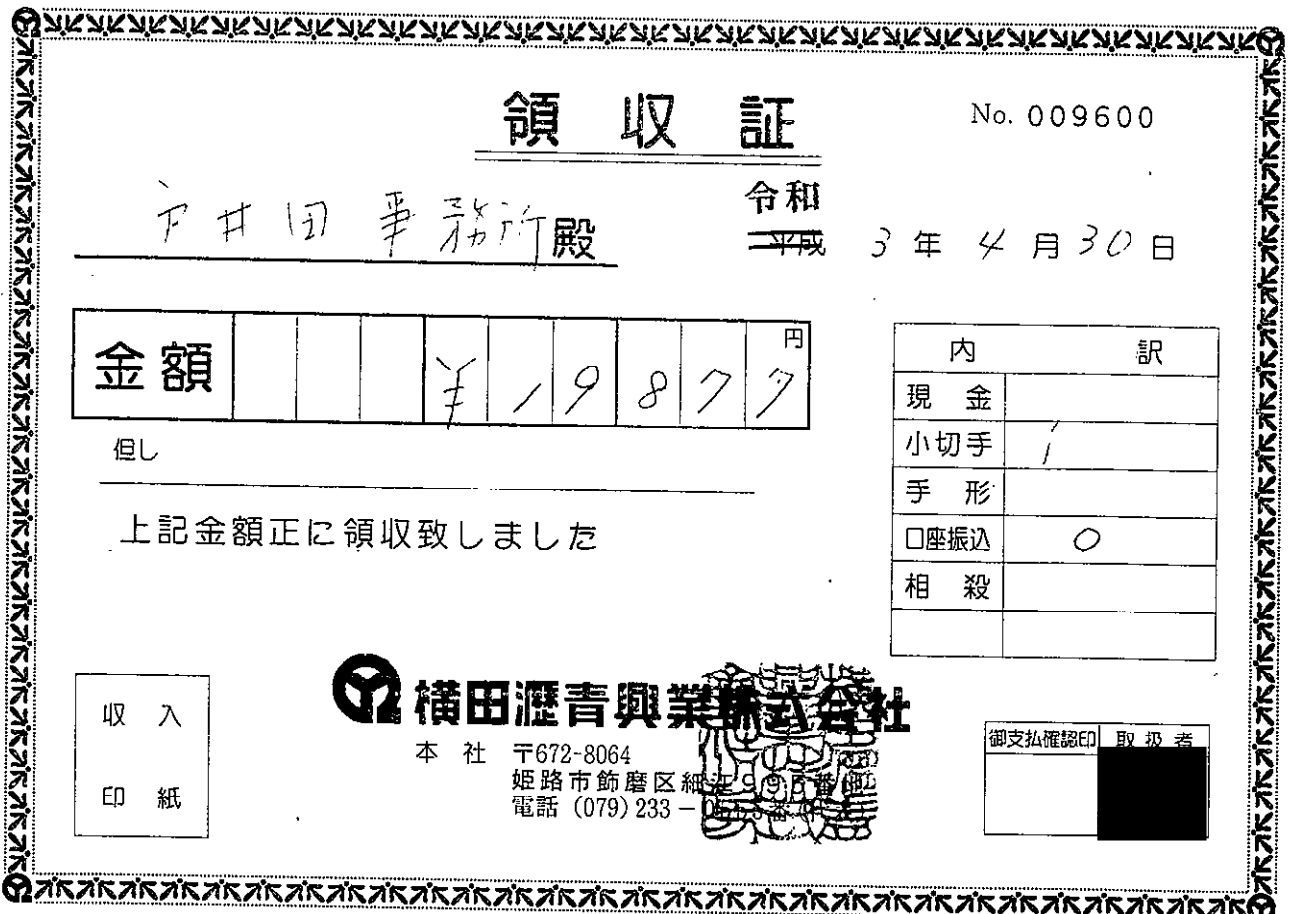 領収証
No. 009600
戸井田事務所殿
令和
平成 3年 4月 30日
金額 ¥19877円
但し
上記金額正に領収致しました
内訳
現金
小切手
手形
口座振込 ○
相殺
収入
印紙
横田瀝青興業株式会社
本社 〒672-8064
姫路市飾磨区細江
電話 (079) 233-
御支払確認印 取扱者